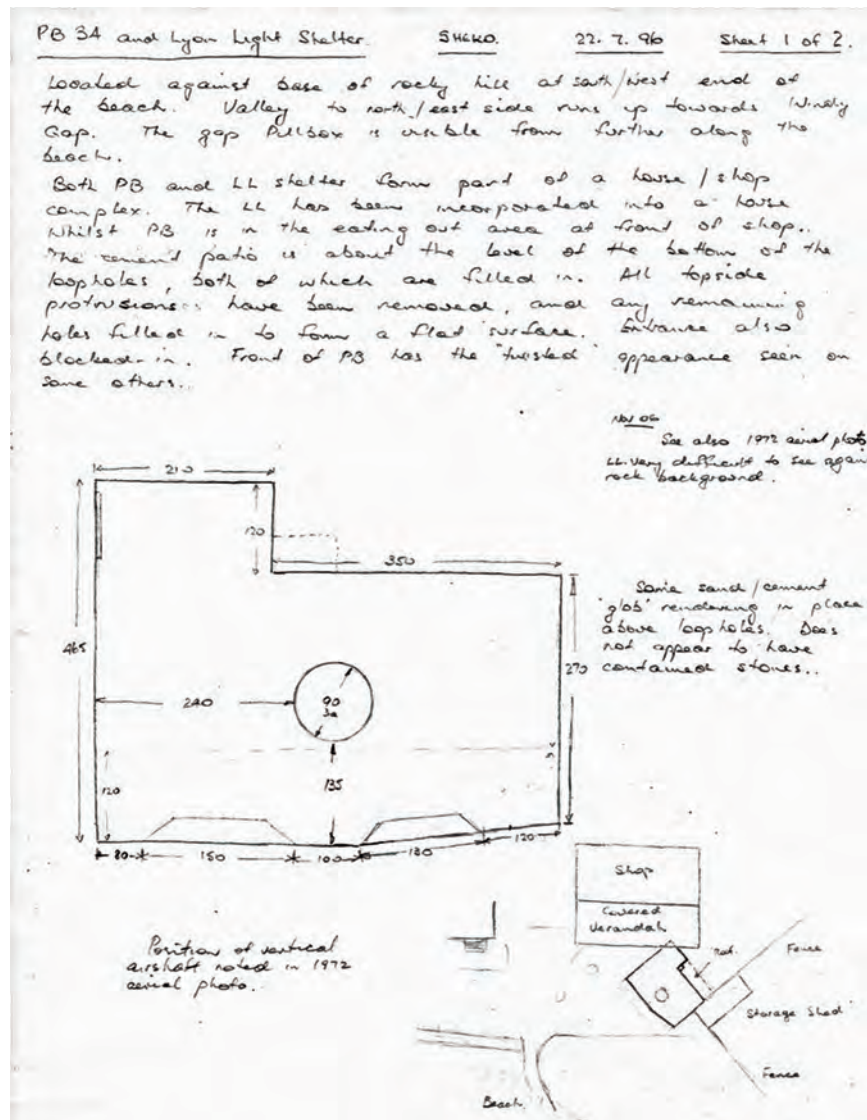 PB 34 and Lyon Light Shelter. SHEKO. 22. 7. 96 Sheet 1 of 2.
Located against base of rocky hill at south/west end of
the beach. Valley to north/east side runs up towards Windy
Gap. The gap Pillbox is visible from further along the
beach.
Both PB and LL shelter form part of a house/shop
complex. The LL has been incorporated into a house
whilst PB is in the eating out area at front of shop.
The cement patio is about the level of the bottom of the
loopholes, both of which are filled in. All topside
protrusions have been removed, and any remaining
holes filled in to form a flat surface. Entrance also
blocked-in. Front of PB has the "twisted" appearance seen on
some others.
Nov 06
See also 1972 aerial photo
LL very difficult to see again
rock background.
210
120
350
Some sand/cement
'glob' rendering in place
above loopholes. Does
not appear to have
contained stones.
465
270
240
90
135
120
80 150 100 180 120
Position of vertical
airshaft noted in 1972
aerial photo.
Shop
Covered
Verandah
Fence
Storage Shed
Fence
Beach